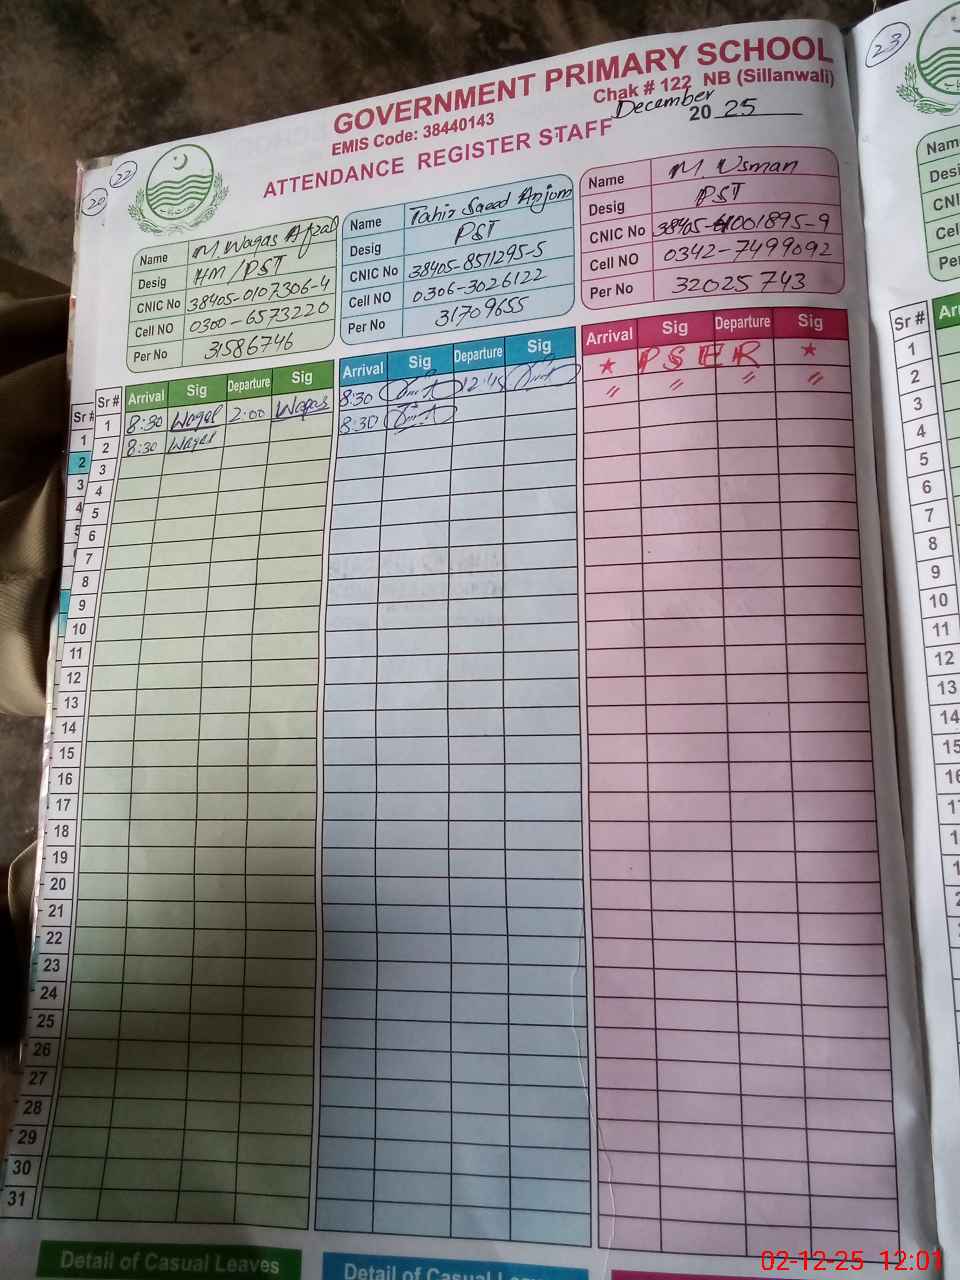 23
GOVERNMENT PRIMARY SCHOOL
Chak # 122 NB (Sillanwali)
EMIS Code: 38440143
December
20 25
ATTENDANCE REGISTER STAFF
20
22
Name M. Waqas Afzal
Desig HM/PST
CNIC No 38405-0107306-4
Cell NO 0300-6573220
Per No 31586746
Name Tahir Saeed Anjum
Desig PST
CNIC No 38405-8571295-5
Cell NO 0306-3026122
Per No 31709655
Name M. Usman
Desig PST
CNIC No 38405-1001895-9
Cell NO 0342-7499092
Per No 32025743
Sr # Arrival Sig Departure Sig Arrival Sig Departure Sig Arrival Sig Departure Sig
1 8:30 Waqas 2:00 Waqas 8:30 12:45 * P S E R *
2 8:30 Waqas 8:30 〃 〃 〃 〃
3
4
5
6
7
8
9
10
11
12
13
14
15
16
17
18
19
20
21
22
23
24
25
26
27
28
29
30
31
Sr #
1
2
3
4
5
Detail of Casual Leaves
Detail of Casual
Name
Desi
CNI
Cel
Pe
Sr # Arr
1
2
3
4
5
6
7
8
9
10
11
12
13
14
15
02-12-25 12:01